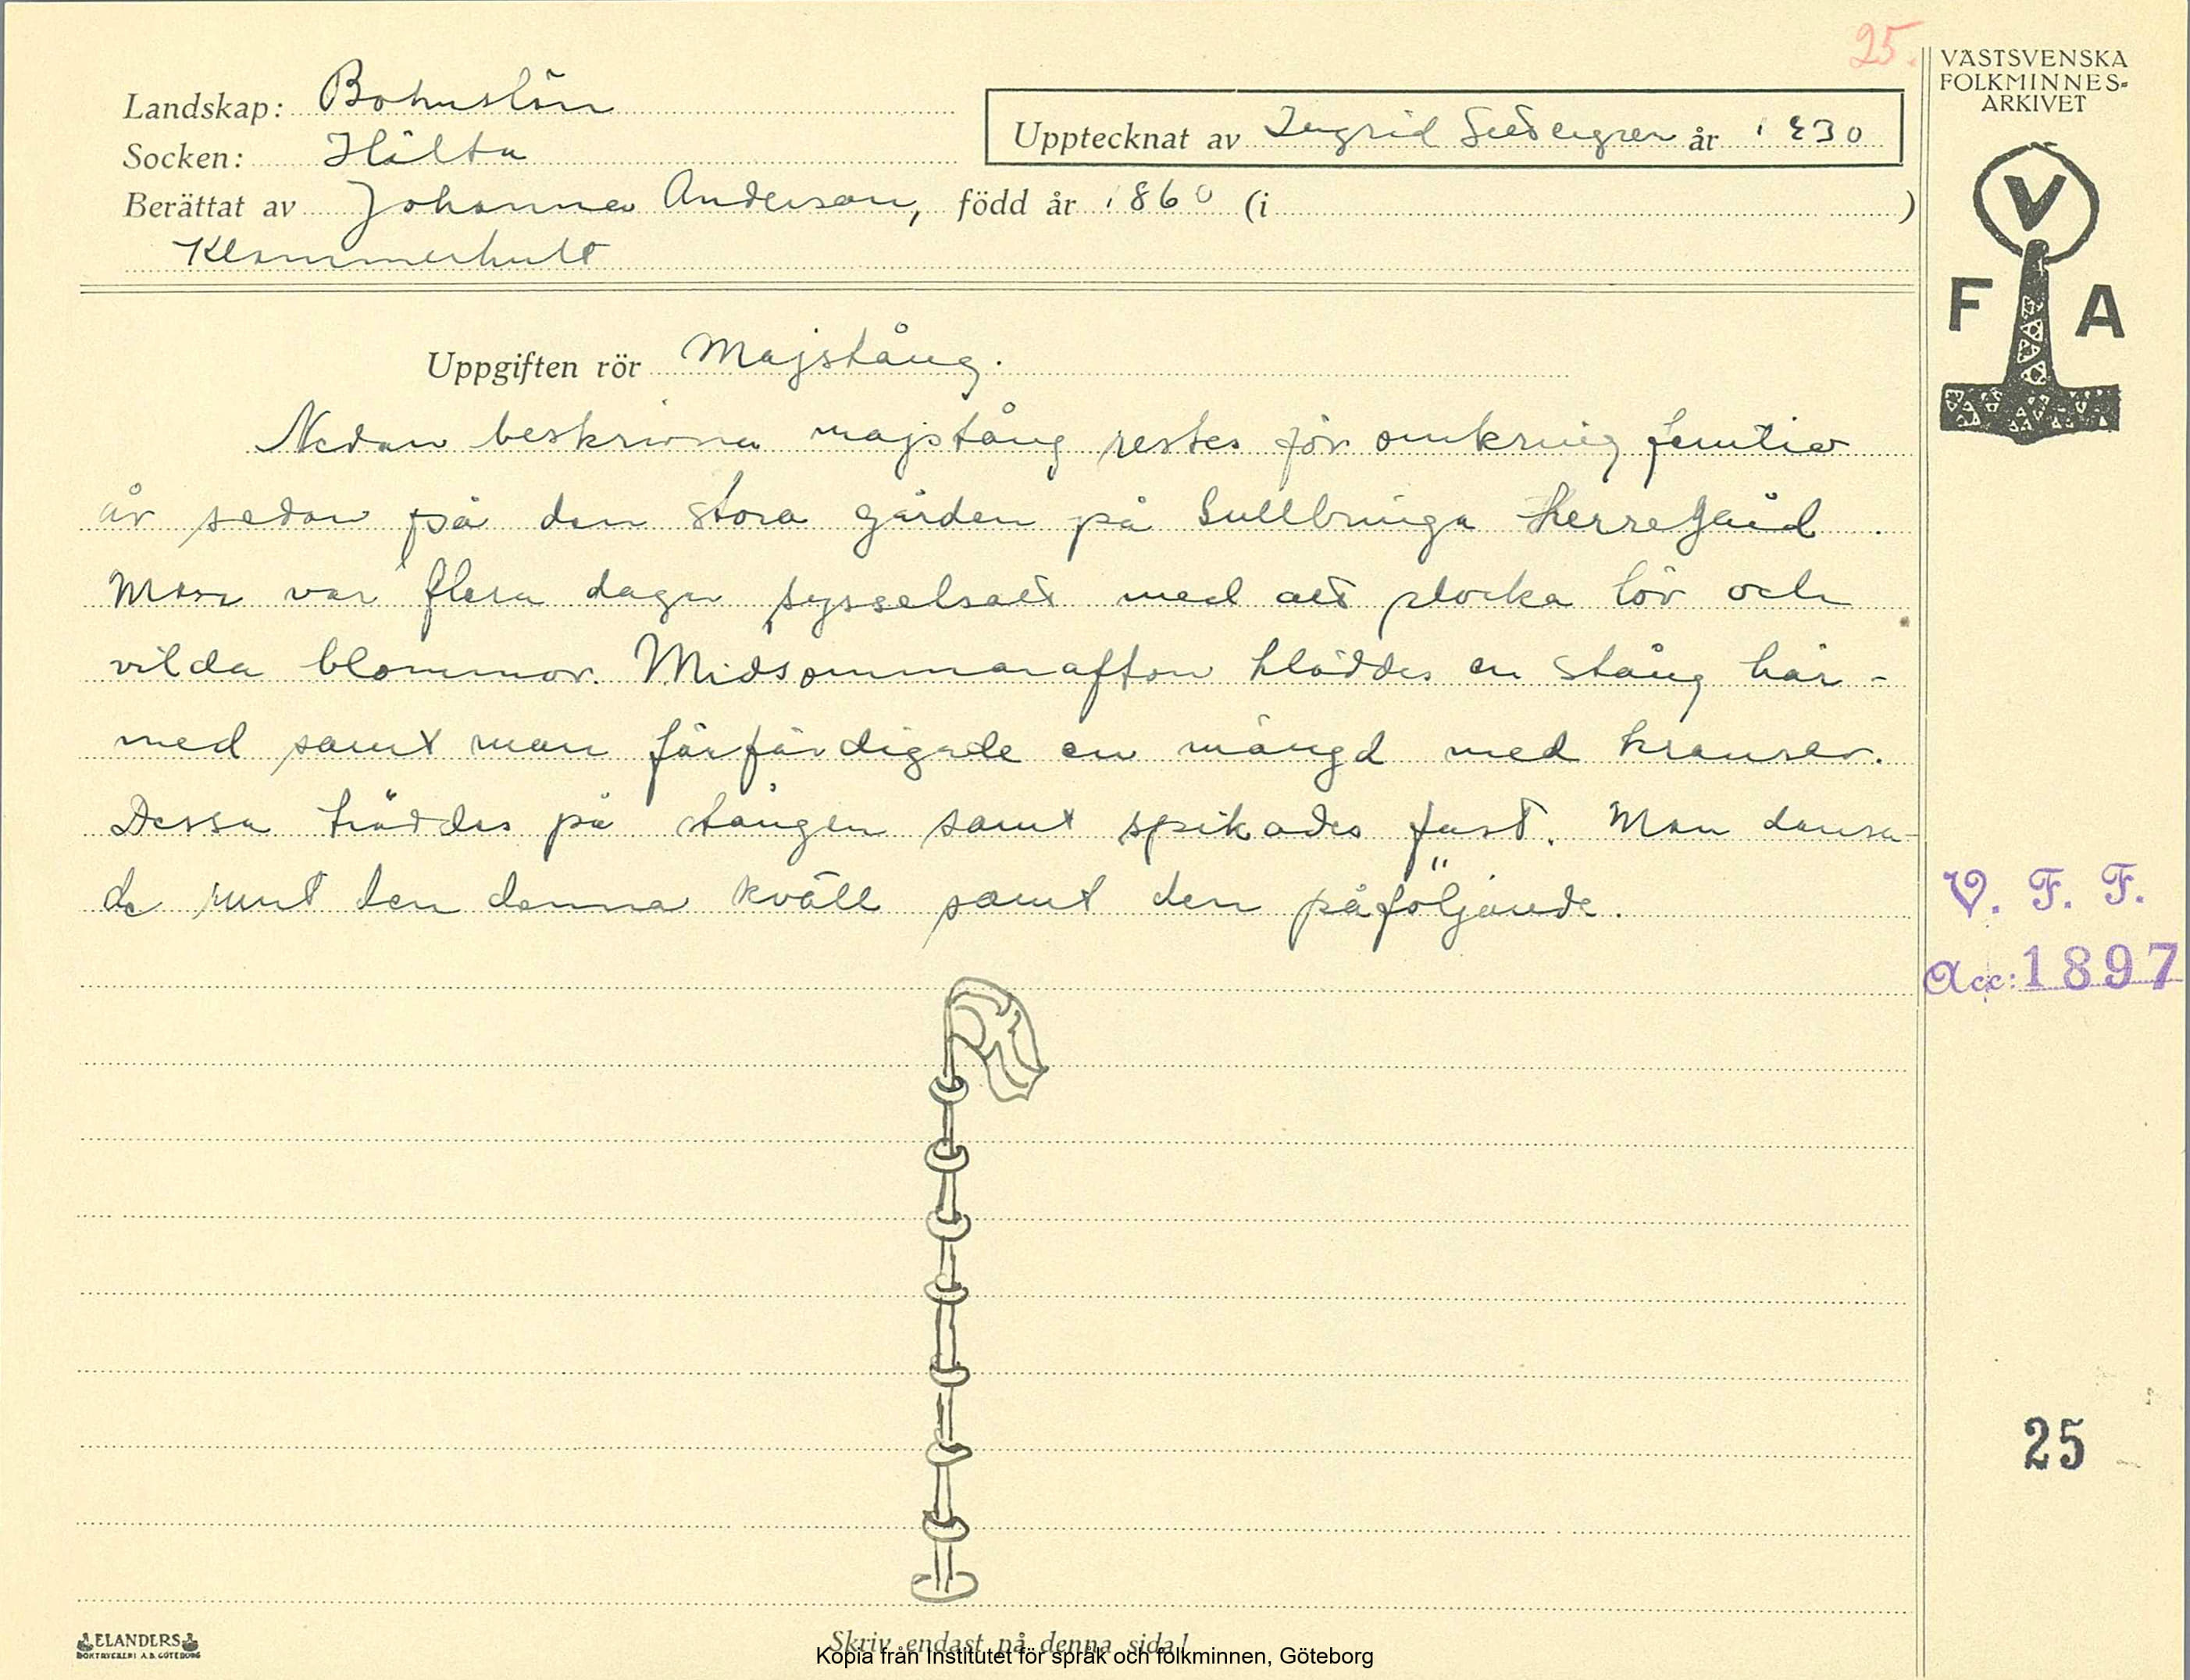 25.
VÄSTSVENSKA
FOLKMINNES-
ARKIVET
Landskap: Bohuslän
Upptecknat av Ingrid år 1930
Socken: Hålta
Berättat av Johanna Anderson, född år 1860 (i )
Klammerhult
V
F A
Uppgiften rör Majstång.
Nedan beskrivna majstång restes för omkring femtio
år sedan på den stora gården på Gullbringa Herregård.
Man var flera dagar sysselsatt med att plocka löv och
vilda blommor. Midsommarafton kläddes en stång här-
med samt man förfärdigade en mängd med kransar.
Dessa träddes på stången samt spikades fast. Man dansa-
de runt den denna kväll samt den påföljande.
V. F. F.
Acc: 1897
25
ELANDERS
BOKTRYCKERI A.B. GÖTEBORG
Skriv endast på denna sida!
Kopia från Institutet för språk och folkminnen, Göteborg